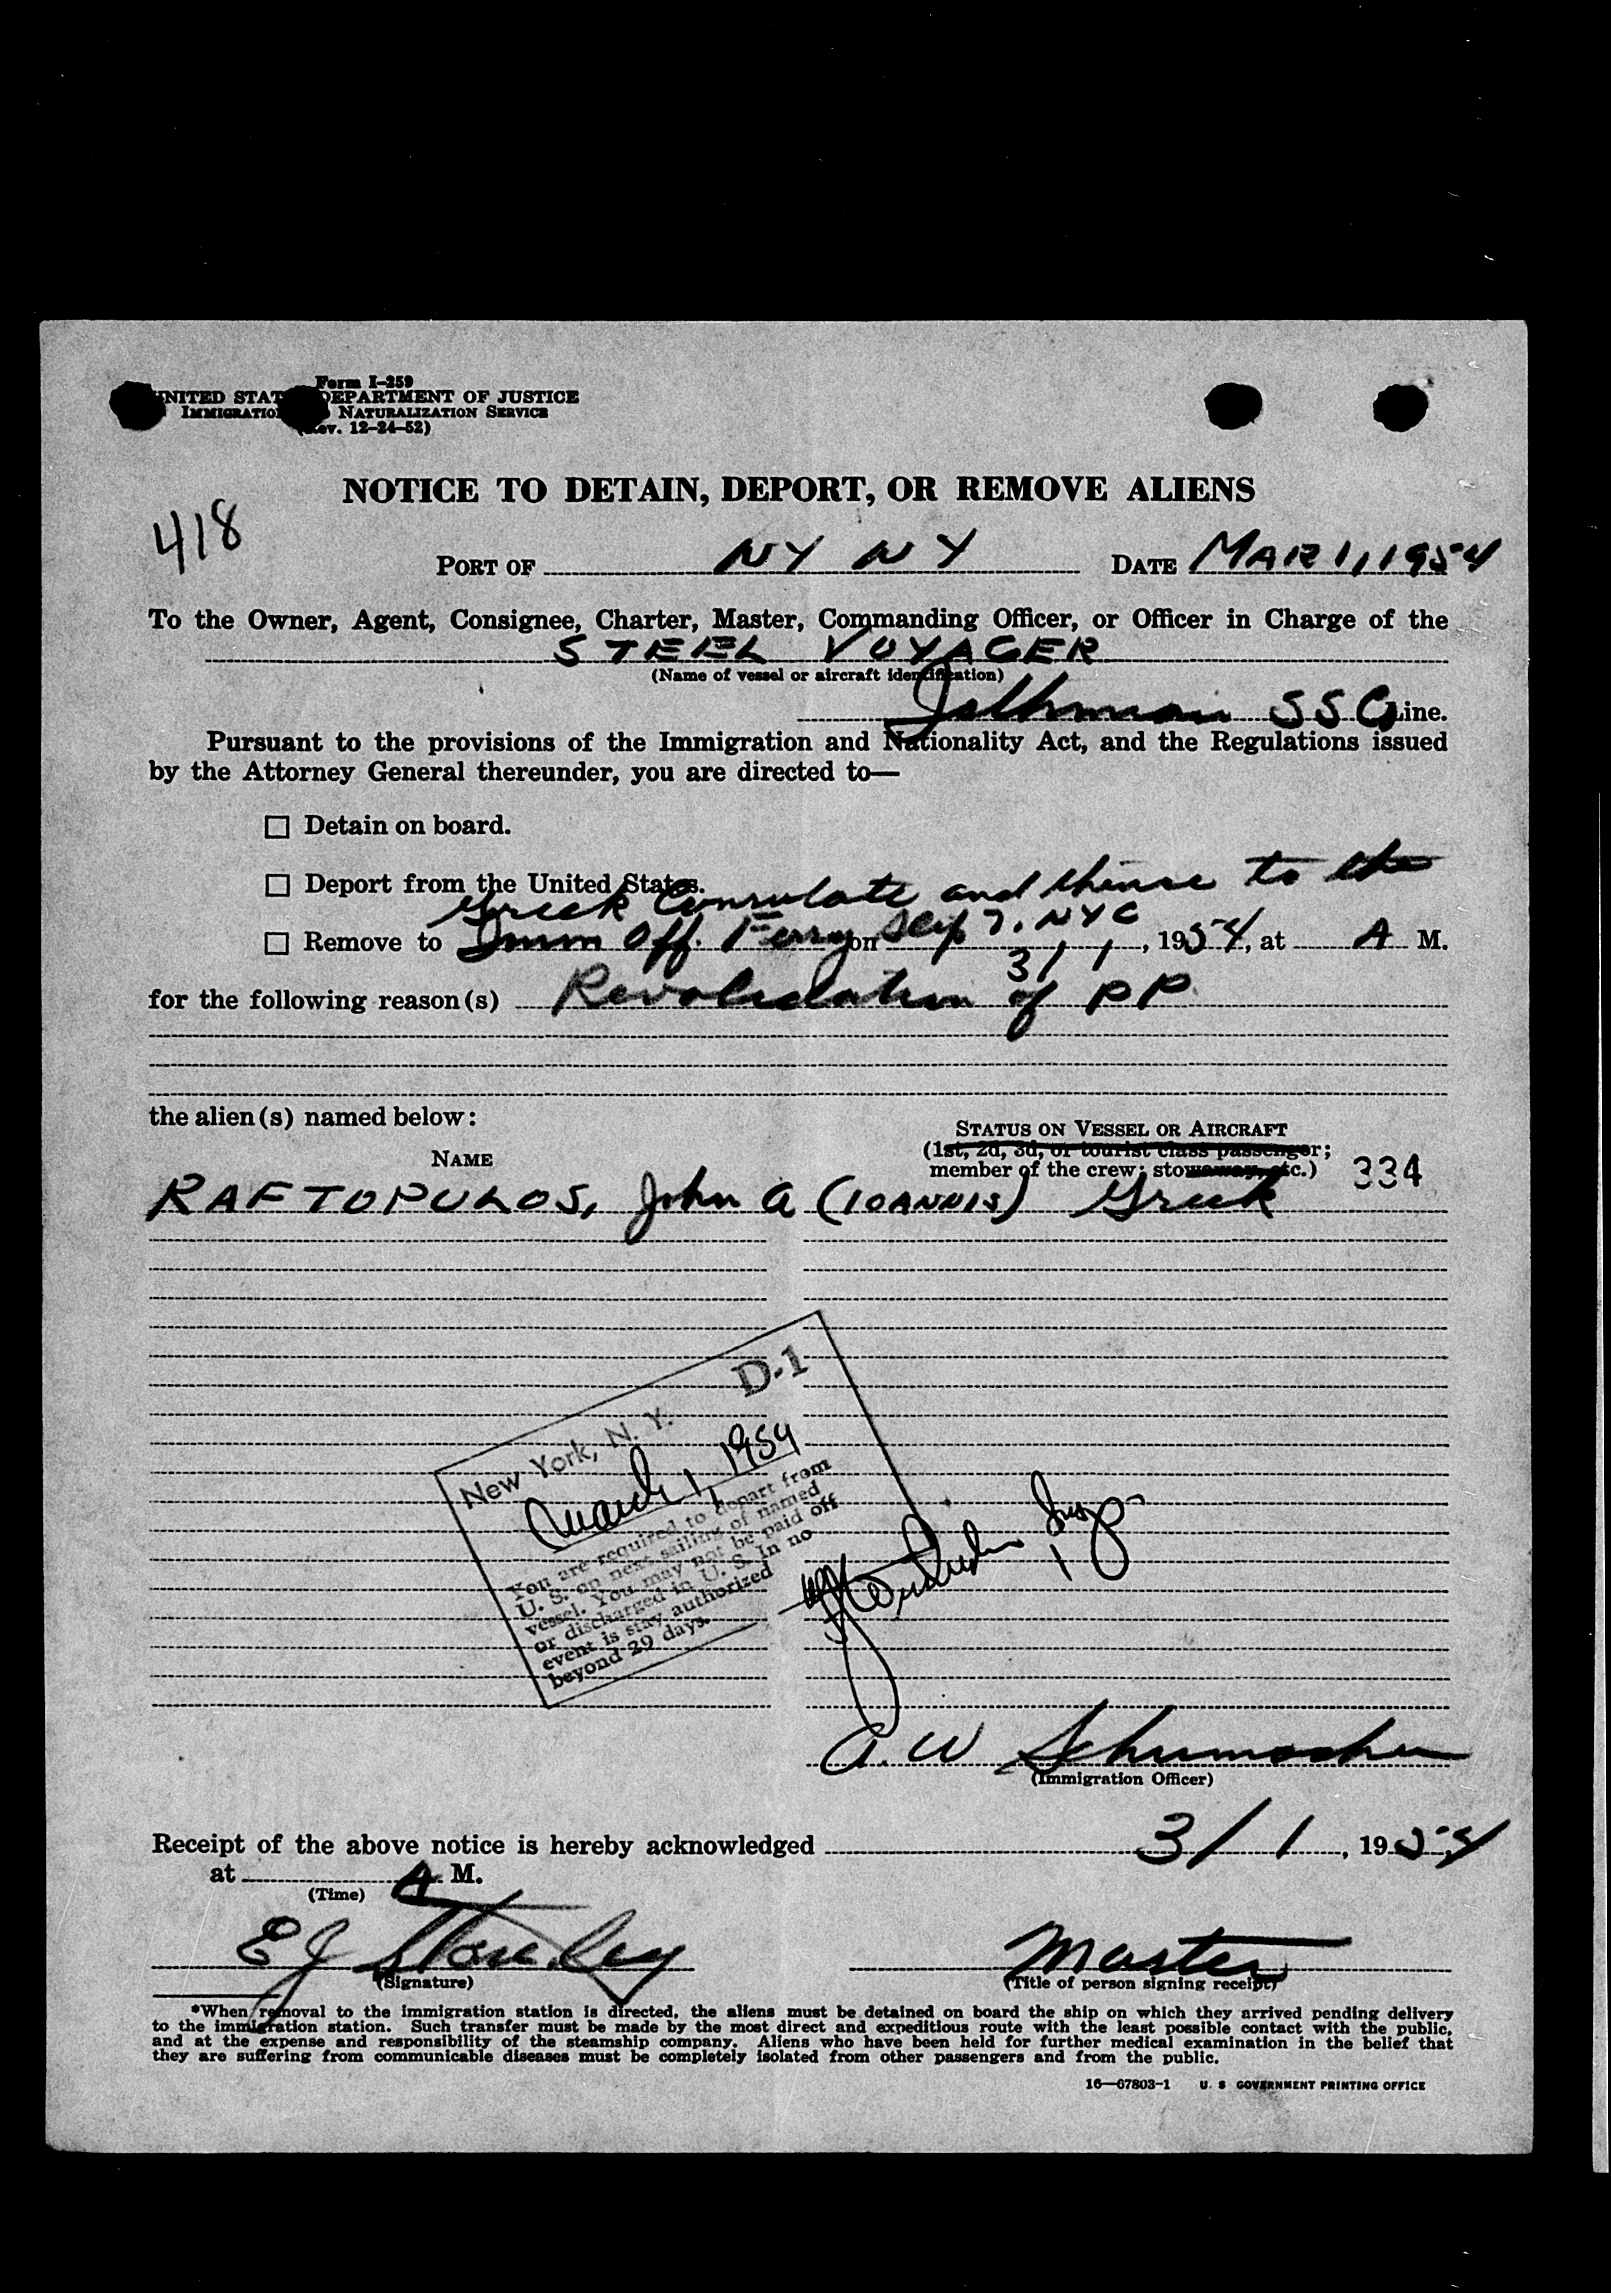 Form I-259
UNITED STAT DEPARTMENT OF JUSTICE
IMMIGRATIO NATURALIZATION SERVICE
ev. 12-24-52)
NOTICE TO DETAIN, DEPORT, OR REMOVE ALIENS
418
PORT OF NY NY DATE MAR 1, 1954
To the Owner, Agent, Consignee, Charter, Master, Commanding Officer, or Officer in Charge of the
STEEL VOYAGER
(Name of vessel or aircraft identification)
Isthmian SS Co Line.
Pursuant to the provisions of the Immigration and Nationality Act, and the Regulations issued
by the Attorney General thereunder, you are directed to—
☐ Detain on board.
☐ Deport from the United States.
Greek Consulate and thence to the
☐ Remove to Imm Off. Ferry on Slip 7, NYC 3/1, 1954, at A M.
for the following reason(s) Revalidation of PP
the alien(s) named below:
STATUS ON VESSEL OR AIRCRAFT
NAME
(1st, 2d, 3d, or tourist class passenger;
member of the crew; stowaway, etc.) 334
RAFTOPULOS, John A (IOANNIS) Greek
D-1
New York, N. Y.
March 1, 1954
You are required to depart from
U. S. on next sailing of named
vessel. You may not be paid off
or discharged in U. S. In no
event is stay authorized
beyond 29 days.
Insp.
A. W Schumacher
(Immigration Officer)
Receipt of the above notice is hereby acknowledged 3/1, 1954
at A M.
(Time)
E J Stanley Master
(Signature) (Title of person signing receipt)
*When removal to the immigration station is directed, the aliens must be detained on board the ship on which they arrived pending delivery
to the immigration station. Such transfer must be made by the most direct and expeditious route with the least possible contact with the public,
and at the expense and responsibility of the steamship company. Aliens who have been held for further medical examination in the belief that
they are suffering from communicable diseases must be completely isolated from other passengers and from the public.
16—67803-1 U. S GOVERNMENT PRINTING OFFICE